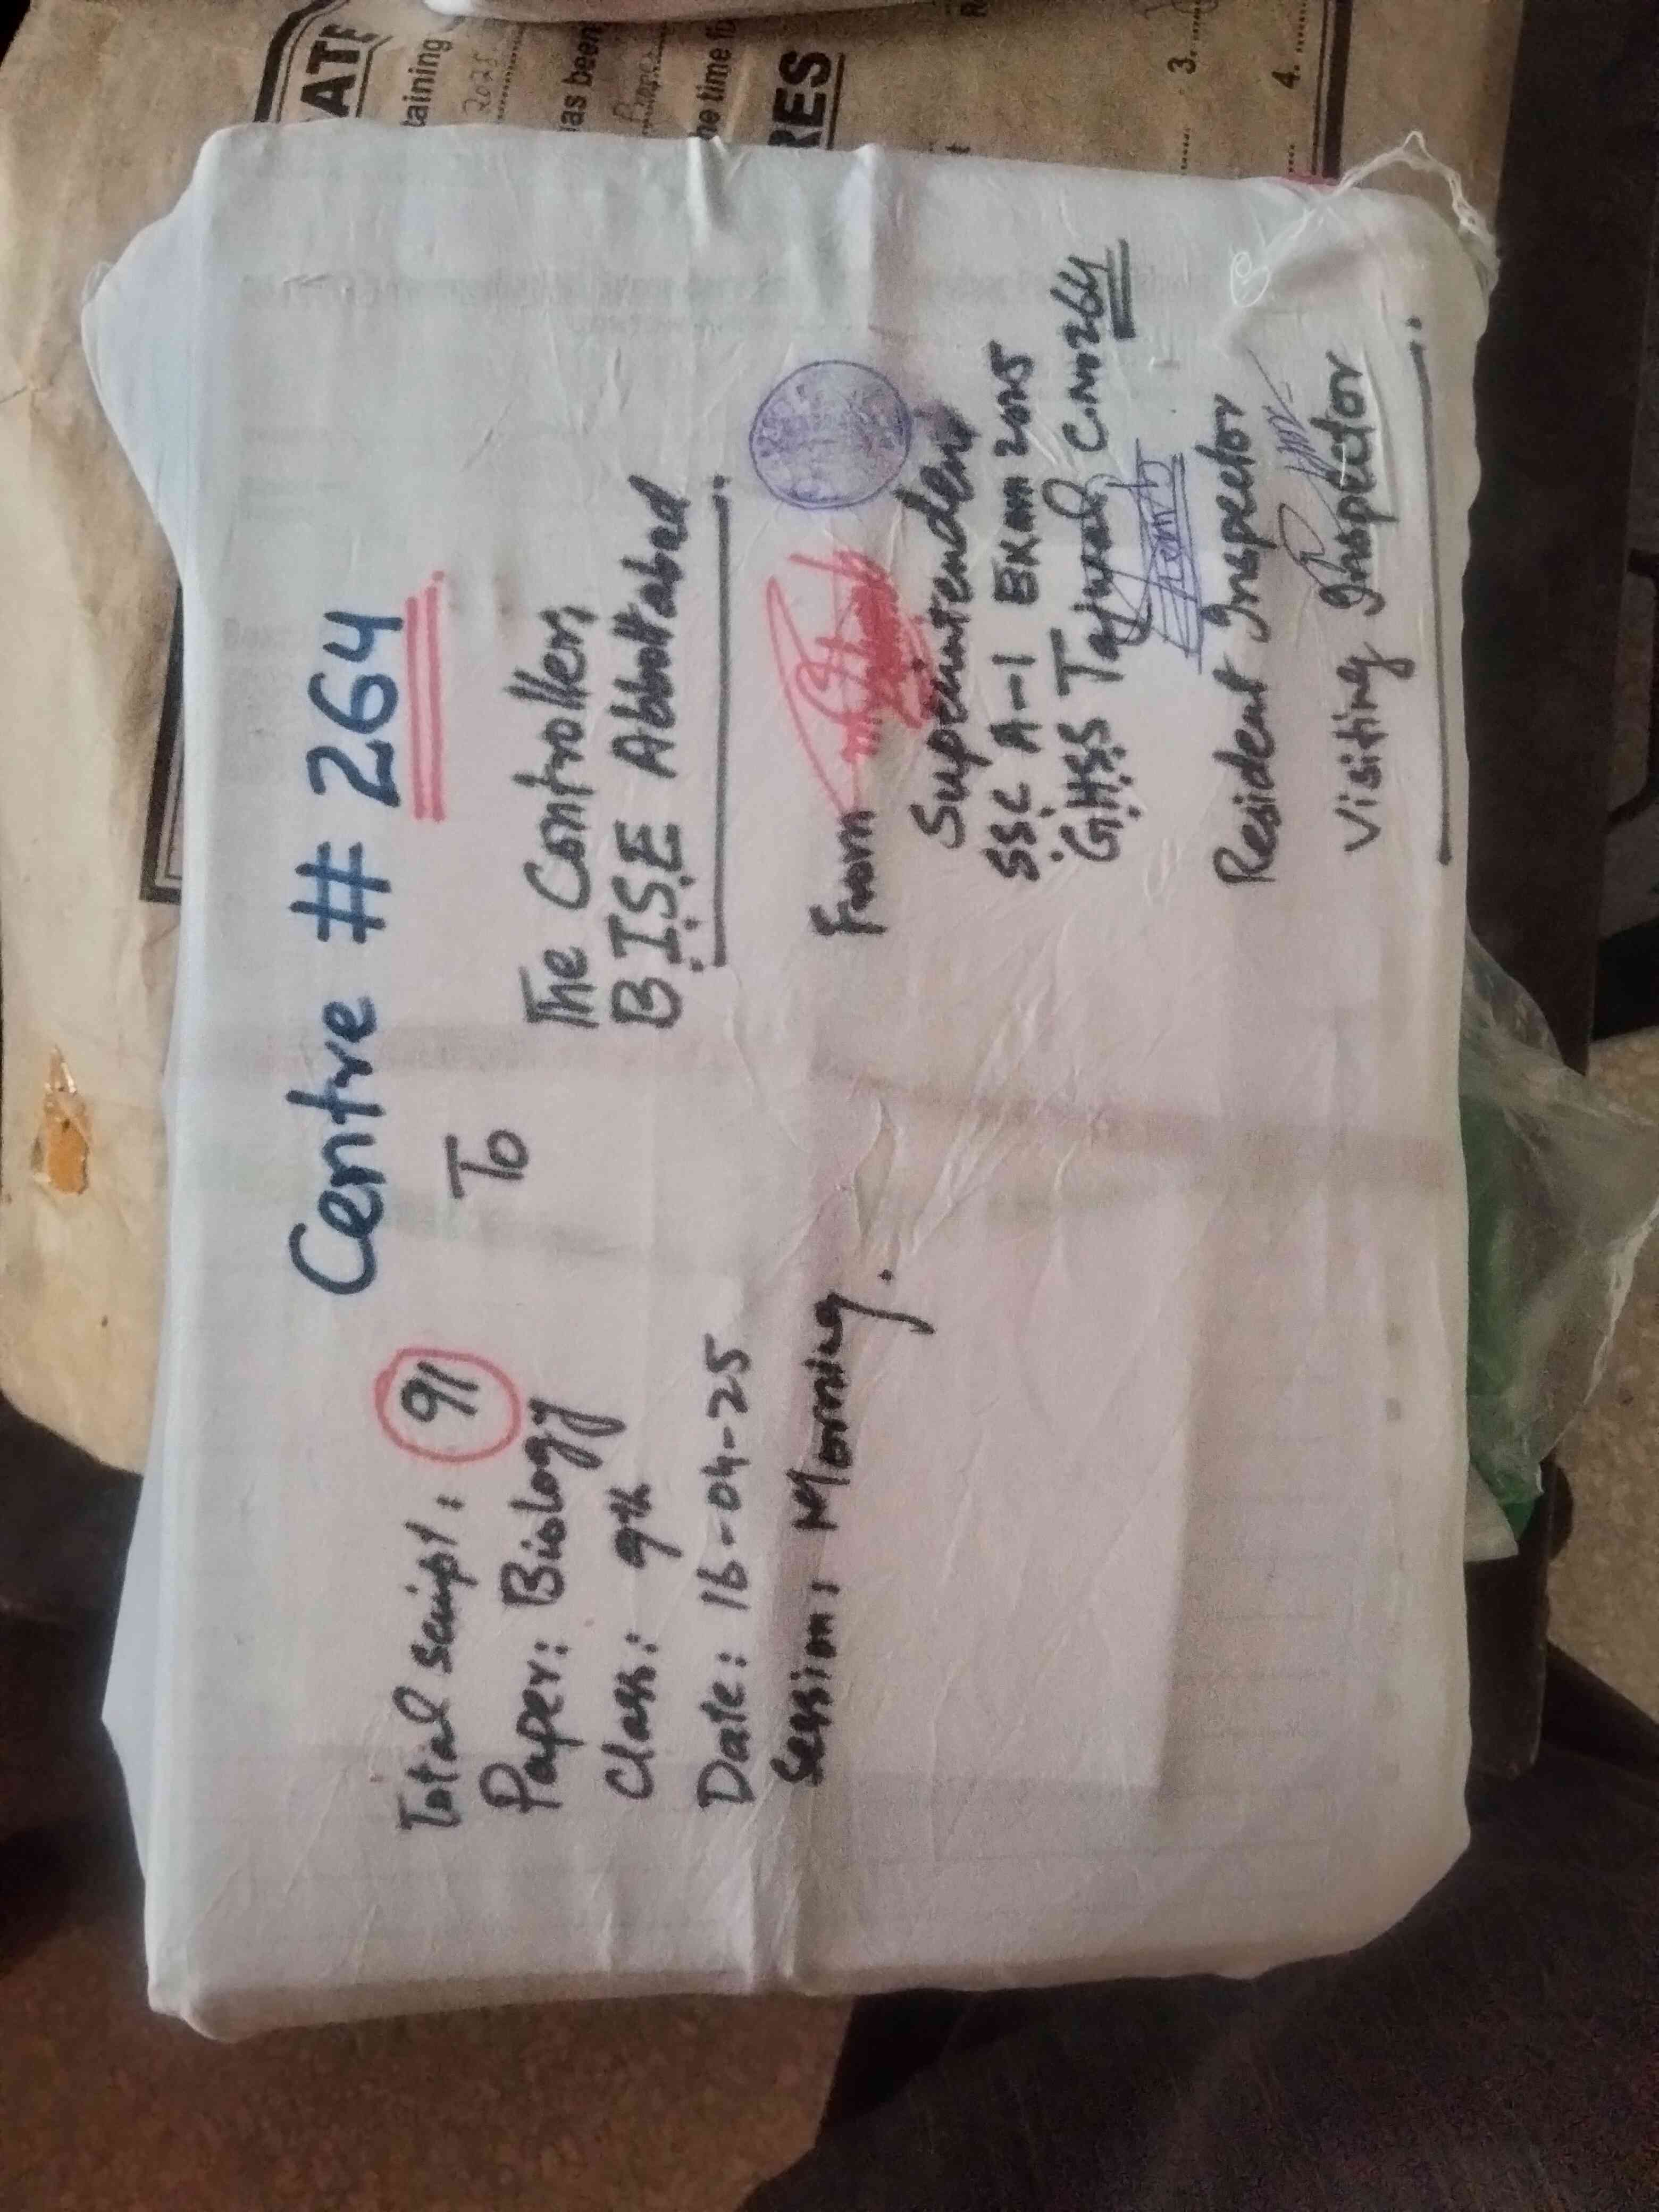 Centre # 264
Total script: 91
Paper: Biology
Class: 9th
Date: 16-04-25
Session: Morning.
To
The Controller,
B.I.S.E Abbottabad
From
Superintendent
SSC A-1 Exam 2025
G.H.S.S Tajwal C.No264
Resident Inspector
Visiting Inspector
ATE
taining
2025
as been
he time fi
RES
3.
4.